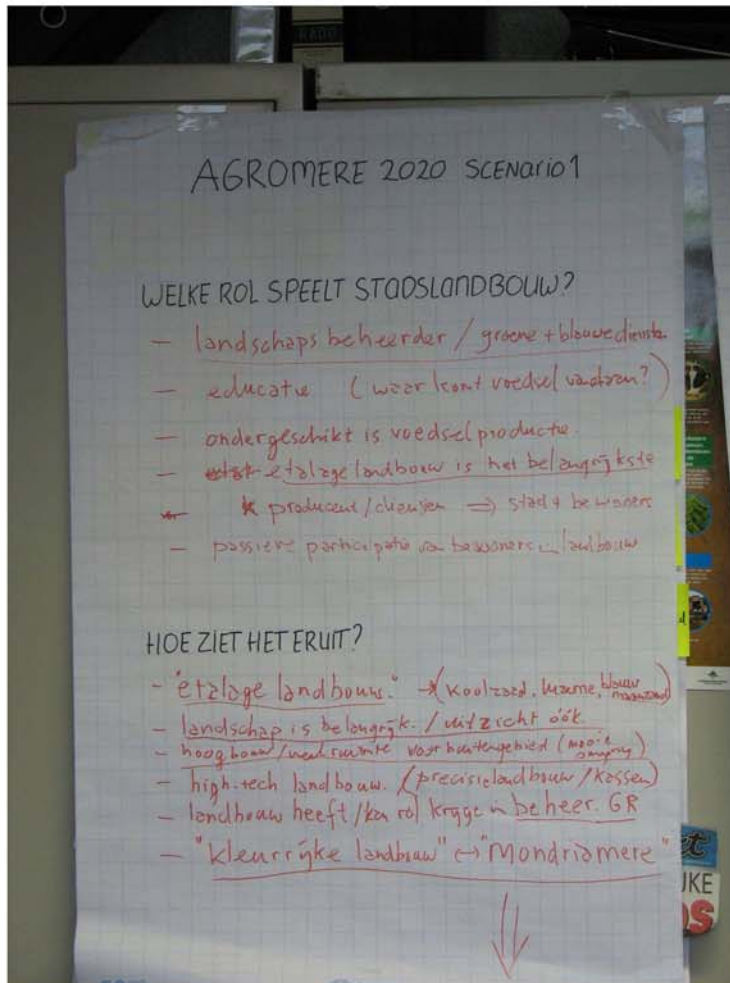 RADO
AGROMERE 2020 SCENARIO 1
WELKE ROL SPEELT STADSLANDBOUW?
- landschaps beheerder / groene + blauwe diensten
- educatie (waar komt voedsel vandaan?)
- ondergeschikt is voedselproductie.
- etalage landbouw is het belangrijkste
producent / => stad + bewoners
- passieve participatie van bewoners in landbouw
HOE ZIET HET ERUIT?
- "etalage landbouw." → (koolzaad, luzerne, blauw maanzaad)
- landschap is belangrijk. / uitzicht óók.
- hoogbouw / veel ruimte voor buitengebied (mooie omgeving)
- high-tech landbouw. (precisielandbouw / kassen)
- landbouw heeft / kan rol krijgen in beheer. GR
- "kleurrijke landbouw" ↔ "Mondriamere"
et
JKE
OS